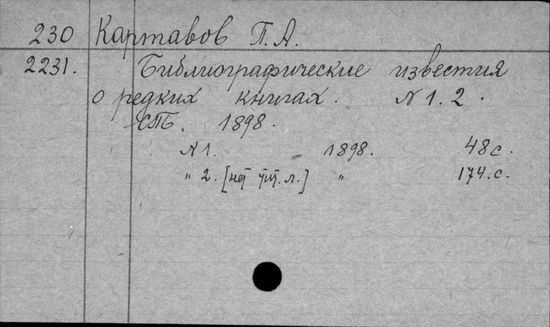 230 Картавов П.А.
2231. Библиографические известия
о редких книгах. N 1.2.
СПб. 1898.
N 1. 1898. 48 с.
" 2. [нет тит. л.] " 174. с.